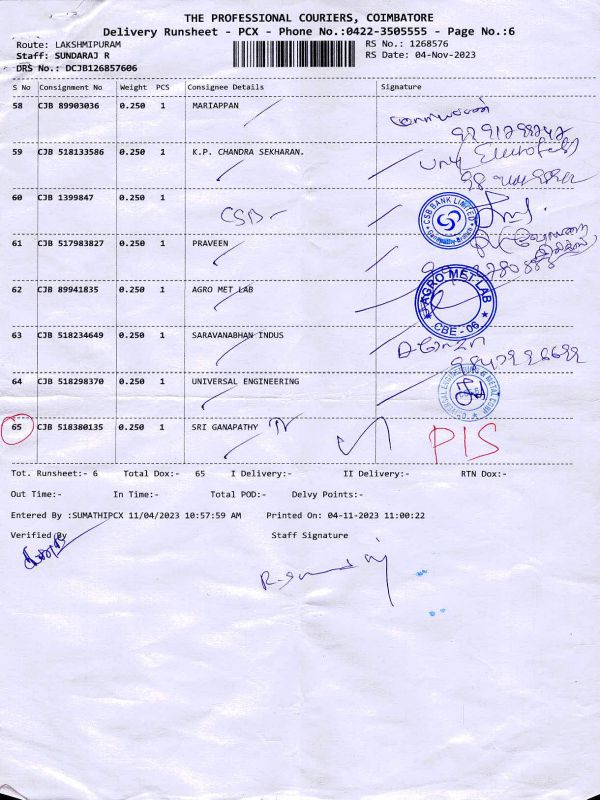 THE PROFESSIONAL COURIERS, COIMBATORE
Delivery Runsheet - PCX - Phone No.:0422-3505555 - Page No.:6
Route: LAKSHMIPURAM RS No.: 1268576
Staff: SUNDARAJ R RS Date: 04-Nov-2023
DRS No.: DCJB126857606
S No Consignment No Weight PCS Consignee Details Signature
58 CJB 89903036 0.250 1 MARIAPPAN
59 CJB 518133586 0.250 1 K.P. CHANDRA SEKHARAN.
60 CJB 1399847 0.250 1 CSB CSB BANK LIMITED
61 CJB 517983827 0.250 1 PRAVEEN
62 CJB 89941835 0.250 1 AGRO MET LAB AGRO MET LAB CBE - 06
63 CJB 518234649 0.250 1 SARAVANABHAN INDUS
64 CJB 518298370 0.250 1 UNIVERSAL ENGINEERING
65 CJB 518380135 0.250 1 SRI GANAPATHY PIS
Tot. Runsheet:- 6 Total Dox:- 65 I Delivery:- II Delivery:- RTN Dox:-
Out Time:- In Time:- Total POD:- Delvy Points:-
Entered By :SUMATHIPCX 11/04/2023 10:57:59 AM Printed On: 04-11-2023 11:00:22
Verified By Staff Signature